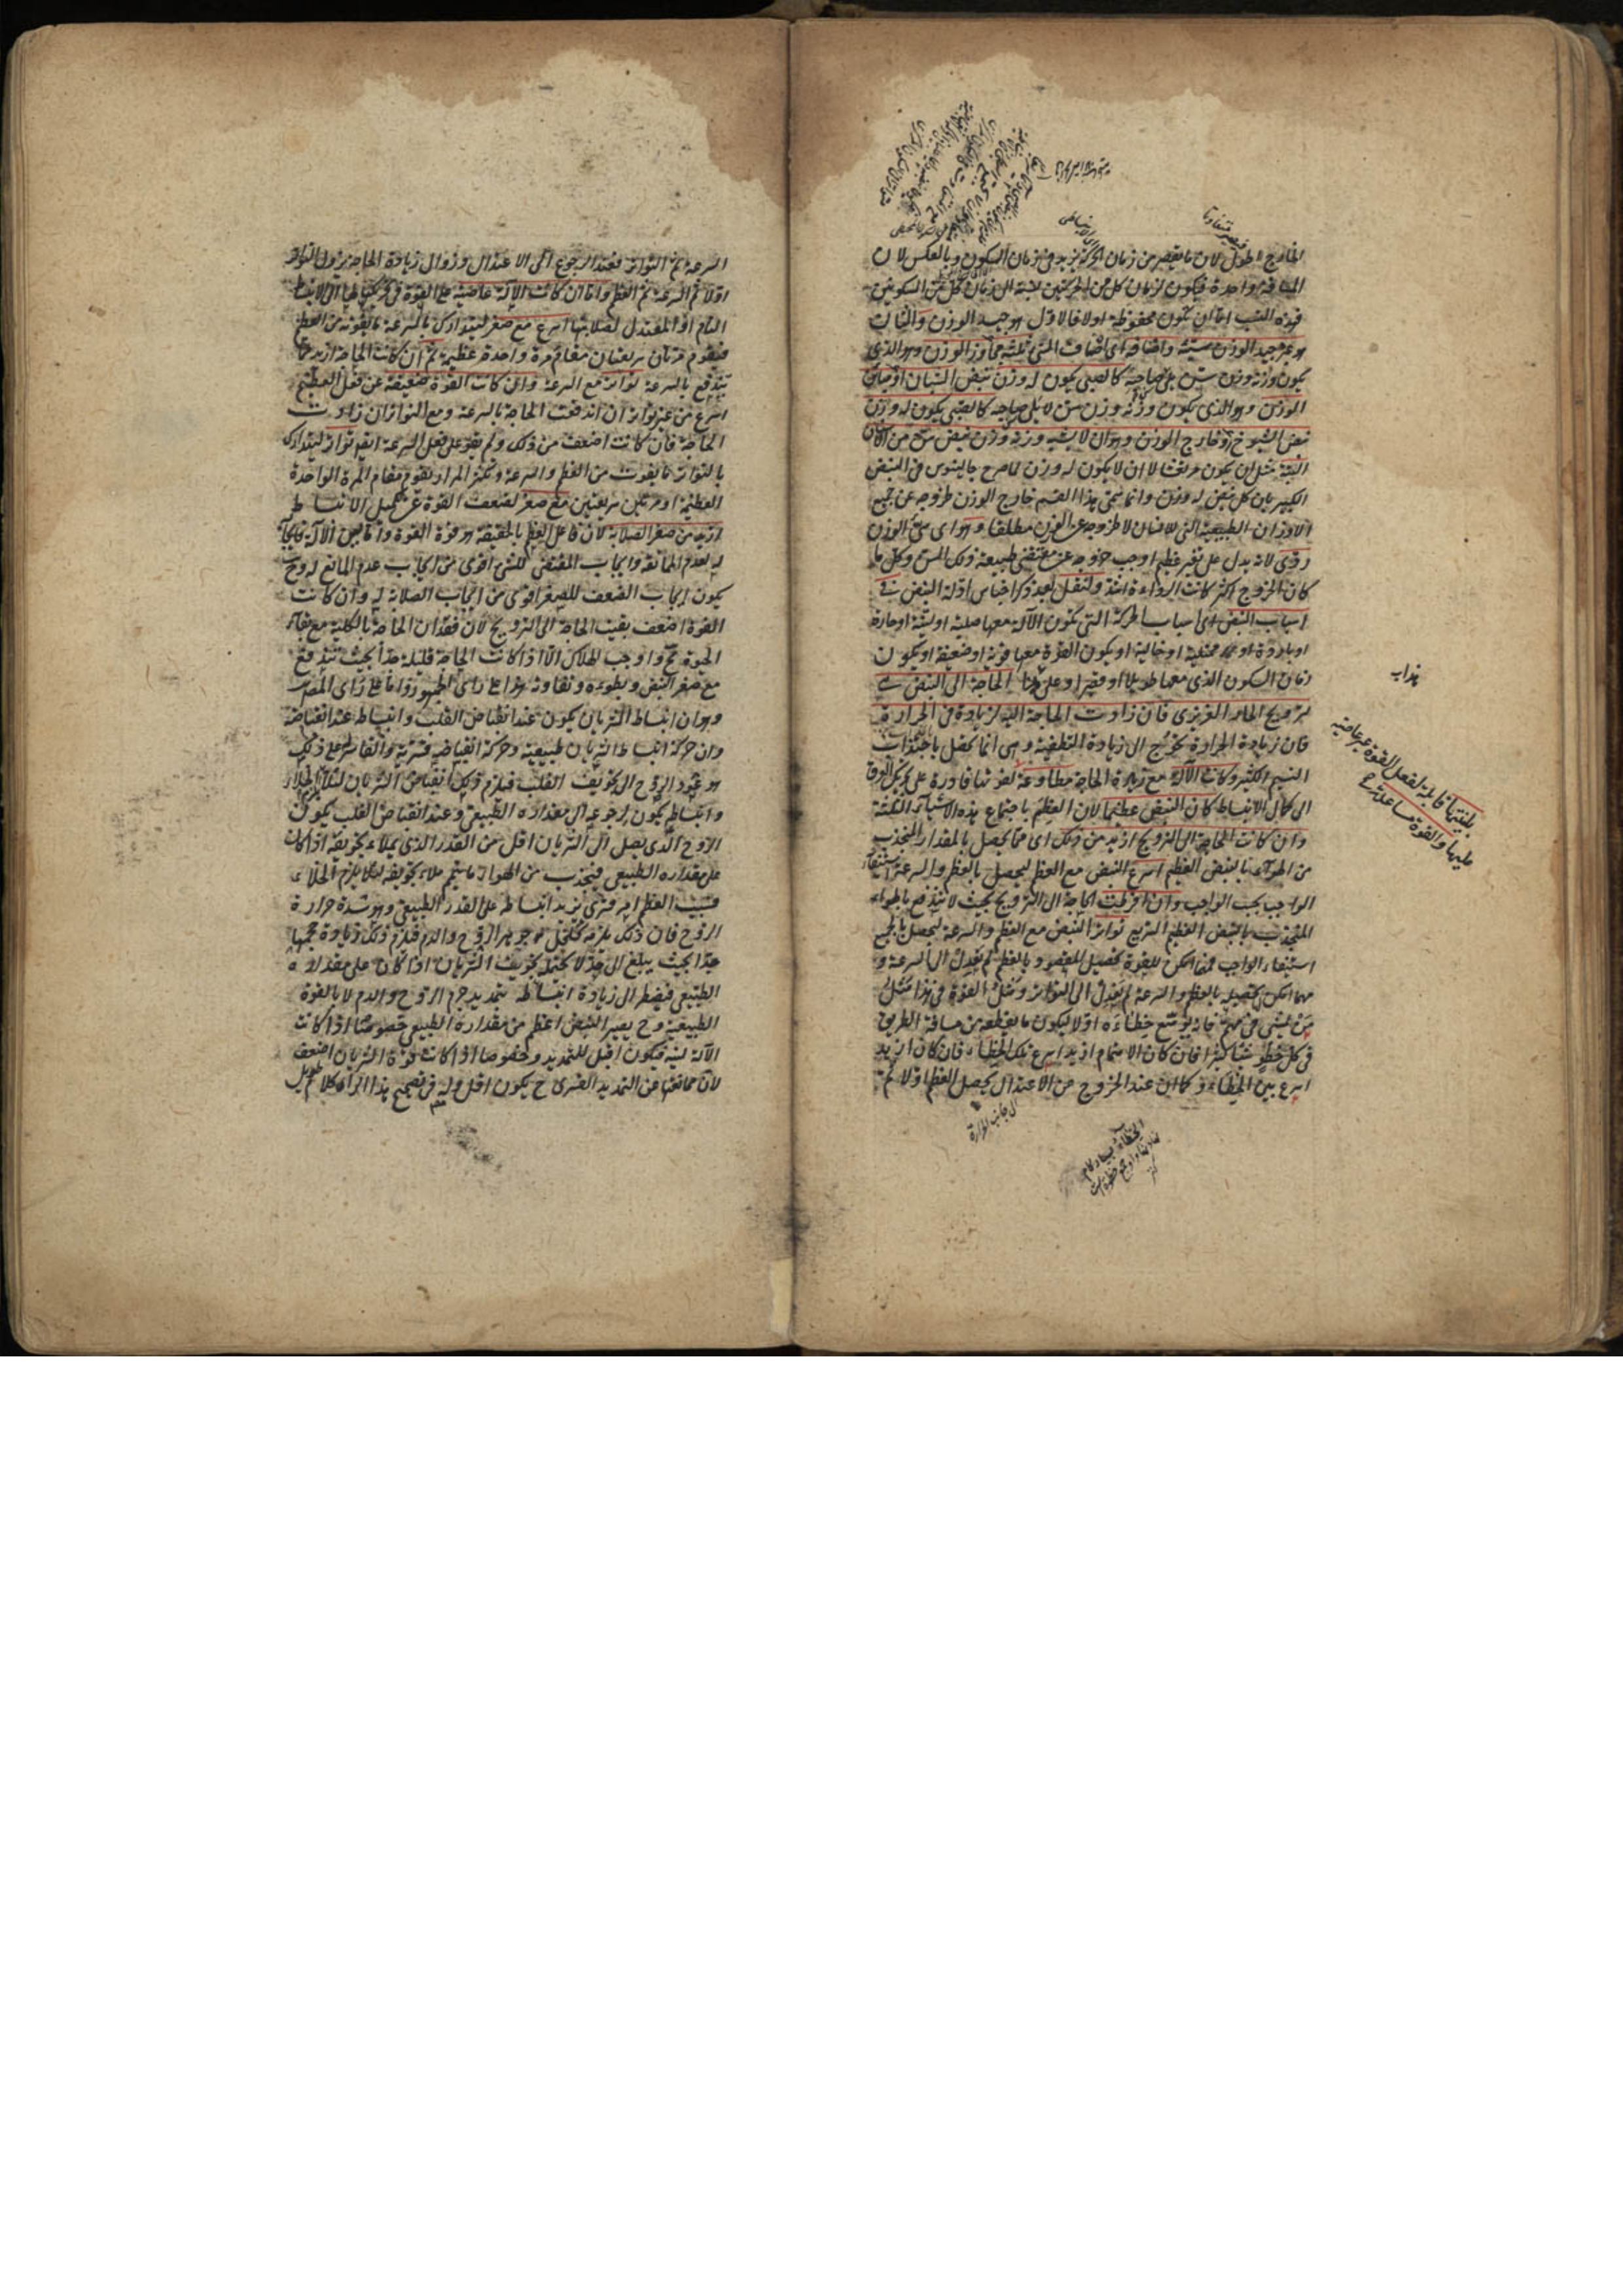 الخارج اطول لان ما ينقص من زمان الحركة يزيد في زمان السكون وبالعكس لان
المسافة واحدة فيكون لزمان كل من الحركتين نسبة الى زمان كل من السكونين
فهذه النسب اما ان تكون محفوظة اولا فالاول هو جيد الوزن والثاني
هو غير جيد الوزن واصنافه اى اصناف ثلثة مجاوز الوزن وهو الذى
يكون وزنه وزن سن يلى سن صاحبه كالصبى يكون له وزن نبض الشبان او مباين
الوزن وهو الذى يكون وزنه وزن سن لا يلى صاحبه كالصبى يكون له وزن
نبض الشيوخ او خارج الوزن وهو ان لا يشبه وزنه وزن نبض سن من الاسنان
البتة مثل ان يكون مرتعشا لا ان لا يكون له وزن لما صرح جالينوس فى النبض
الكبير بان كل نبض له وزن وانما سمى هذا القسم خارج الوزن لخروجه عن جميع
الاوزان الطبيعية التى للانسان لا لخروجه عن الوزن مطلقا وهو اى سيئ الوزن
ردى لانه يدل على تغير عظيم اوجب خروجه عن مقتضى طبيعة ذلك السن وكل ما
كان الخروج اكثر كانت الرداءة اشد ولنقل بعد ذكر اجناس ادلة النبض فى
اسباب النبض اى اسباب الحركة التى تكون الآلة معها صلبة او لينة او حارة
او باردة او ممتلية او خالية او يكون القوة معها قوية او ضعيفة او يكون
زمان السكون الذى معها طويلا او قصيرا وعلى هذا الحاجة الى النبض هى
لترويح الحار الغريزى فان زادت الحاجة اليه لزيادة فى الحرارة
فان زيادة الحرارة تحوج الى زيادة التطفية وهى انما تحصل باجتذاب
النسيم الكثير وكانت الآلة مع زيادة الحاجة مطاوعة لقوتها قادرة على تحريك العرق
الى كمال الانبساط كان النبض عظيما لان العظم باجتماع هذه الاشياء الثلثة
وان كانت الحاجة الى الترويح ازيد من ذلك اى مما يحصل بالمقدار المنجذب
من الهواء بالنبض العظيم اسرع النبض مع العظم ليحصل بالعظم والسرعة استيفاء
الواجب بحسب الواجب وان افرطت الحاجة الى الترويح بحيث لا تندفع بالهواء
المنجذب بالنبض العظيم السريع تواتر النبض مع العظم والسرعة ليحصل بالجميع
استيفاء الواجب فمهما امكن للقوة تحصيل المقصود بالعظم لم تعدل الى السرعة و
مهما امكن تحصيله بالعظم والسرعة لم تعدل الى التواتر ومثل القوة فى هذا مثل
من يمشى فى مهم فانه يوسع خطاءه اولا ليكون ما يقطعه من مسافة الطريق
فى كل خطو شيئا كثيرا فان كان الاهتمام ازيد اسرع تلك الخطاء فان كان ازيد
اسرع بين الخطاء وكما ان عند الخروج عن الاعتدال يحصل العظم اولا ثم
الى جانب الحرارة
السرعة ثم التواتر فعند الرجوع الى الاعتدال وزوال زيادة الحاجة يزول التواتر
اولا ثم السرعة ثم العظم واما ان كانت الآلة عاصية على القوة فى تحريكها الى الانبساط
التام او المعتدل لصلابتها اسرع مع صغر ليتدارك بالسرعة ما يفوته من العظم
فتقوم مرتان سريعتان مقام مرة واحدة عظيمة ثم ان كانت الحاجة ازيد مما
تندفع بالسرعة تواتر مع السرعة وان كانت القوة ضعيفة عن فعل العظيم
اسرع من غير تواتر ان اندفعت الحاجة بالسرعة ومع التواتر ان زادت
الحاجة فان كانت اضعف من ذلك ولم يقو على فعل السرعة ايضا تواتر ليتدارك
بالتواتر ما يفوت من العظم والسرعة وتكثر المرار وتقوم مقام المرة الواحدة
العظيمة او مرتين سريعتين مع صغر لضعف القوة عن تكميل الانبساط
ازيد من صغر الصلابة لان فاعل العظم بالحقيقة هو قوة القوة واما لين الآلة فايجابه
له لعدم الممانعة وايجاب المقتضى للشئ اقوى من ايجاب عدم المانع له وح
يكون ايجاب الضعف للصغر اقوى من ايجاب الصلابة له وان كانت
القوة اضعف بقيت الحاجة الى الترويح لان فقدان الحاجة بالكلية مع بقاء
الحيوة مح واوجب الهلاك الا اذا كانت الحاجة قليلة جدا بحيث تندفع
مع صغر النبض وبطوءه وتفاوته هذا على راى الجمهور واما على راى المصنف
وهو ان انبساط الشريان يكون عند انقباض القلب وانبساط عند انقباضه
وان حركة انبساط الشريان طبيعية وحركة انقباضه قسرية والقاسر على ذلك
هو عود الروح الى تجويف القلب فيلزم ذلك انقباض الشريان لئلا يلزم الخلاء
وانبساطه يكون لرجوعه الى مقداره الطبيعى وعند انقباض القلب يكون
الروح الذى يصل الى الشريان اقل من القدر الذى يملاء تجويفه اذا كان
على مقداره الطبيعى فيجذب من الهواء ما يتم ملاء تجويفه لئلا يلزم الخلاء
فسبب العظم امر قسرى يزيد انبساطه على القدر الطبيعى وهو شدة حرارة
الروح فان ذلك يلزمه تخلخل جوهر الروح والدم فيلزم ذلك زيادة حجمها
جدا بحيث يبلغ الى حد لا يحتمله تجويف الشريان اذا كان على مقداره
الطبيعى فيضطر الى زيادة انبساطه بتمديد جرم الروح والدم لا بالقوة
الطبيعية وح يصير النبض اعظم من مقداره الطبيعى خصوصا اذا كانت
الآلة لينة فيكون اقبل للتمديد وخصوصا اذا كانت قوة الشريان اضعف
لان ممانعتها عن التمديد القسرى ح يكون اقل وله فى تصحيح هذا الراى كلام طويل